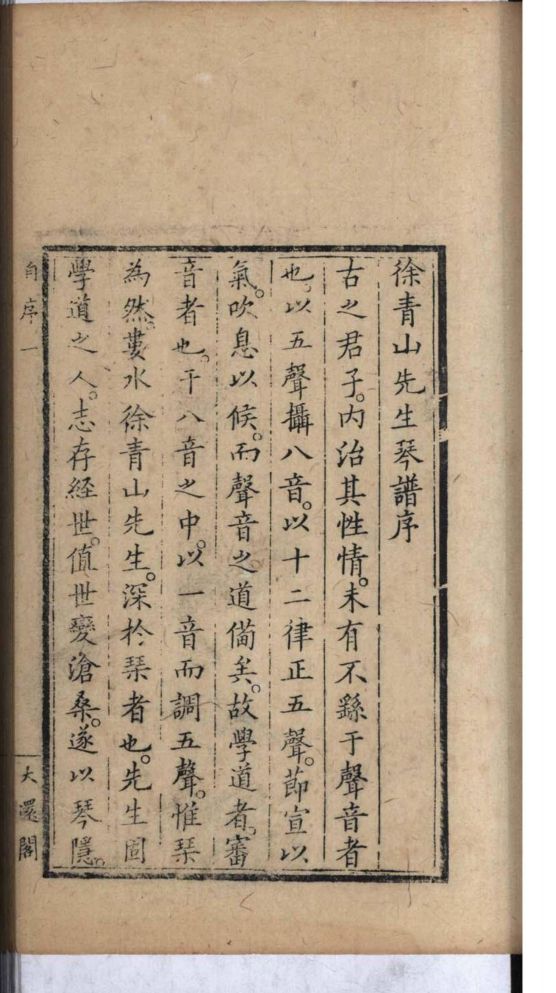 徐青山先生琴譜序
古之君子。内治其性情。未有不繇于聲音者
也。以五聲攝八音。以十二律正五聲。節宣以
氣。吹息以候。而聲音之道備矣。故學道者。審
音者也。于八音之中。以一音而調五聲。惟琴
為然。婁水徐青山先生。深於琴者也。先生固
學道之人。志存経世。值世變滄桑。遂以琴隱。
自序 一
大還閣